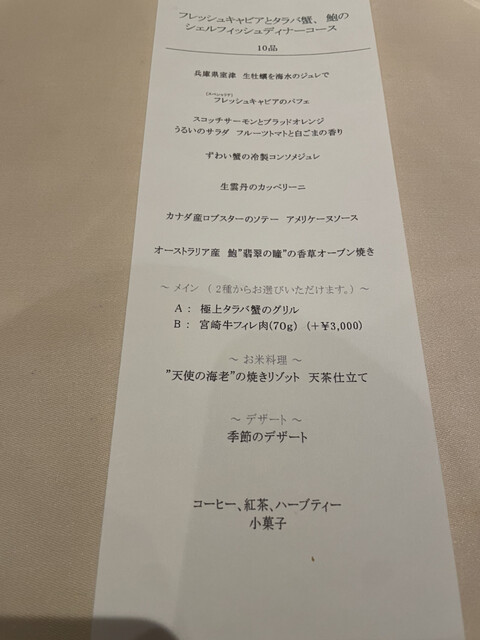 フレッシュキャビアとタラバ蟹、 鮑の
シェルフィッシュディナーコース
10品
兵庫県室津 生牡蠣を海水のジュレで
(スペシャリテ)
フレッシュキャビアのパフェ
スコッチサーモンとブラッドオレンジ
うるいのサラダ フルーツトマトと白ごまの香り
ずわい蟹の冷製コンソメジュレ
生雲丹のカッペリーニ
カナダ産ロブスターのソテー アメリケーヌソース
オーストラリア産 鮑"翡翠の瞳"の香草オーブン焼き
～ メイン ( 2種からお選びいただけます。) ～
A : 極上タラバ蟹のグリル
B : 宮崎牛フィレ肉(70g) (+¥3,000)
～ お米料理 ～
"天使の海老"の焼きリゾット 天茶仕立て
～ デザート ～
季節のデザート
コーヒー、紅茶、ハーブティー
小菓子